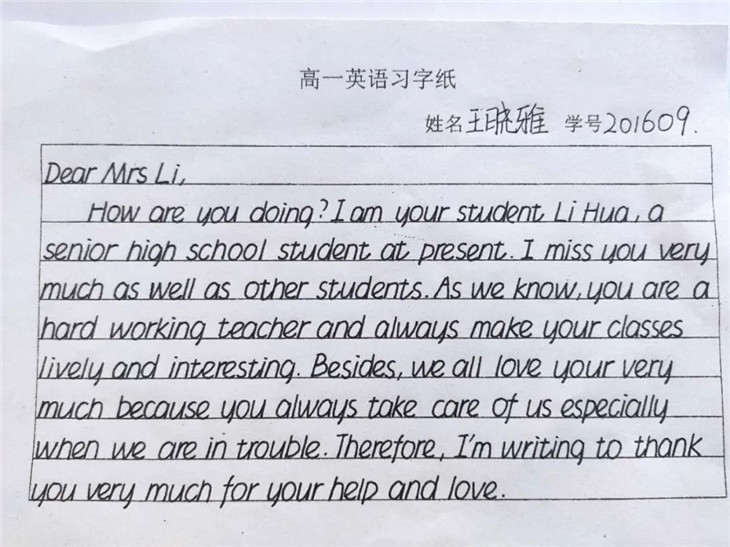 高一英语习字纸
姓名王晓雅 学号201609.
Dear Mrs Li,
How are you doing? I am your student Li Hua, a
senior high school student at present. I miss you very
much as well as other students. As we know, you are a
hard working teacher and always make your classes
lively and interesting. Besides, we all love your very
much because you always take care of us especially
when we are in trouble. Therefore, I'm writing to thank
you very much for your help and love.